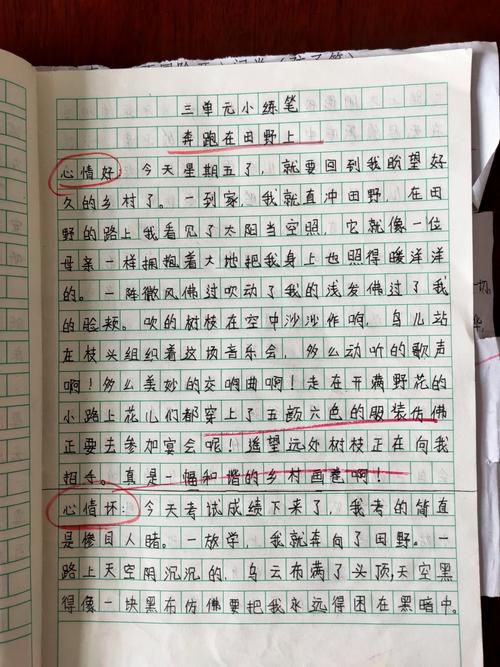 三单元小练笔
奔跑在田野上
心情好:今天星期五了,就要回到我盼望好
久的乡村了。一到家,我就直冲田野,在田
野的路上我看见了太阳当空照,它就像一位
母亲一样拥抱着大地把我身上也照得暖洋洋
的。一阵微风佛过吹动了我的浅发佛过了我
的脸颊。吹的树枝在空中沙沙作响,鸟儿站
在枝头组织着这场音乐会,多么动听的歌声
啊!多么美妙的交响曲啊!走在开满野花的
小路上花儿们都穿上了五颜六色的服装仿佛
正要去参加宴会呢!遥望远处树枝正在向我
招手。真是一幅和谐的乡村画卷啊!
心情坏:今天考试成绩下来了,我考的简直
是惨目人睹。一放学,我就奔向了田野。一
路上天空阴沉沉的,乌云布满了头顶天空黑
得像一块黑布仿佛要把我永远得困在黑暗中。